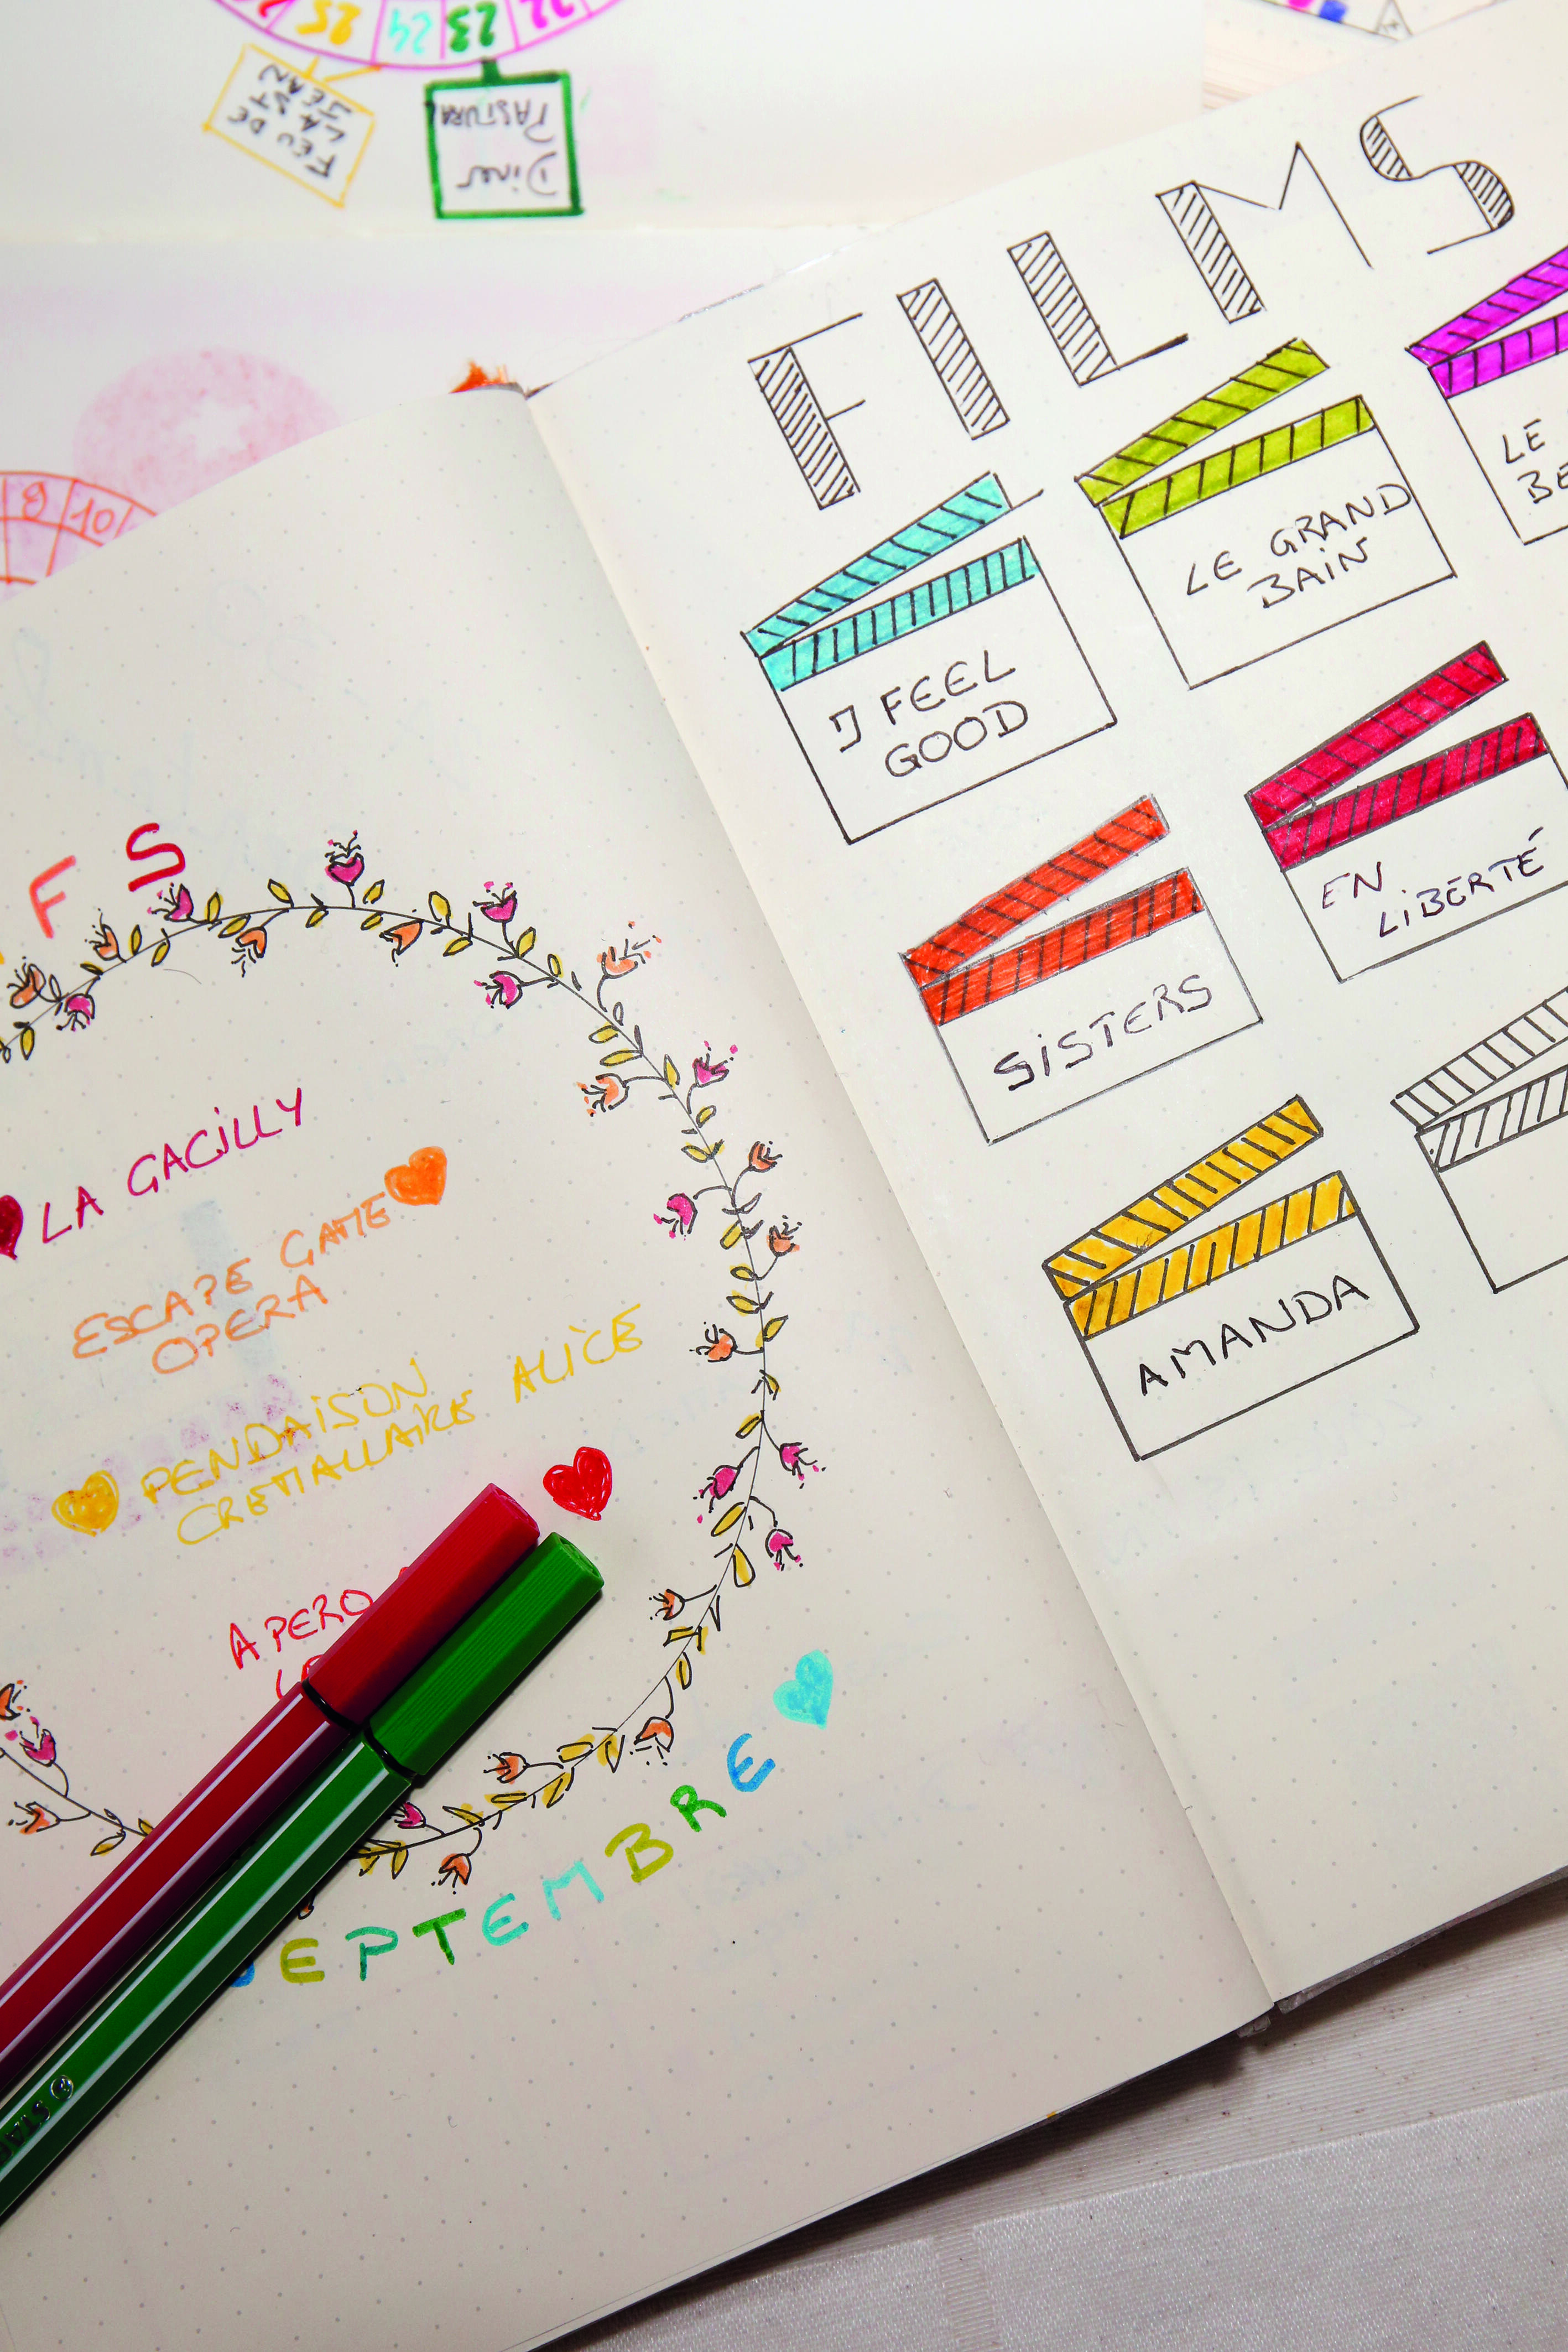 25 24 23 22
FEU DE
LA ST
JEAN
Diner
PASTURAL
9 10
F S
LA GACILLY
ESCAPE GAME
OPERA
PENDAISON
CREMAILLAIRE ALICE
APERO
EPTEMBRE
FILMS
I FEEL
GOOD
LE GRAND
BAIN
LE
BE
SISTERS
EN
LIBERTÉ
AMANDA